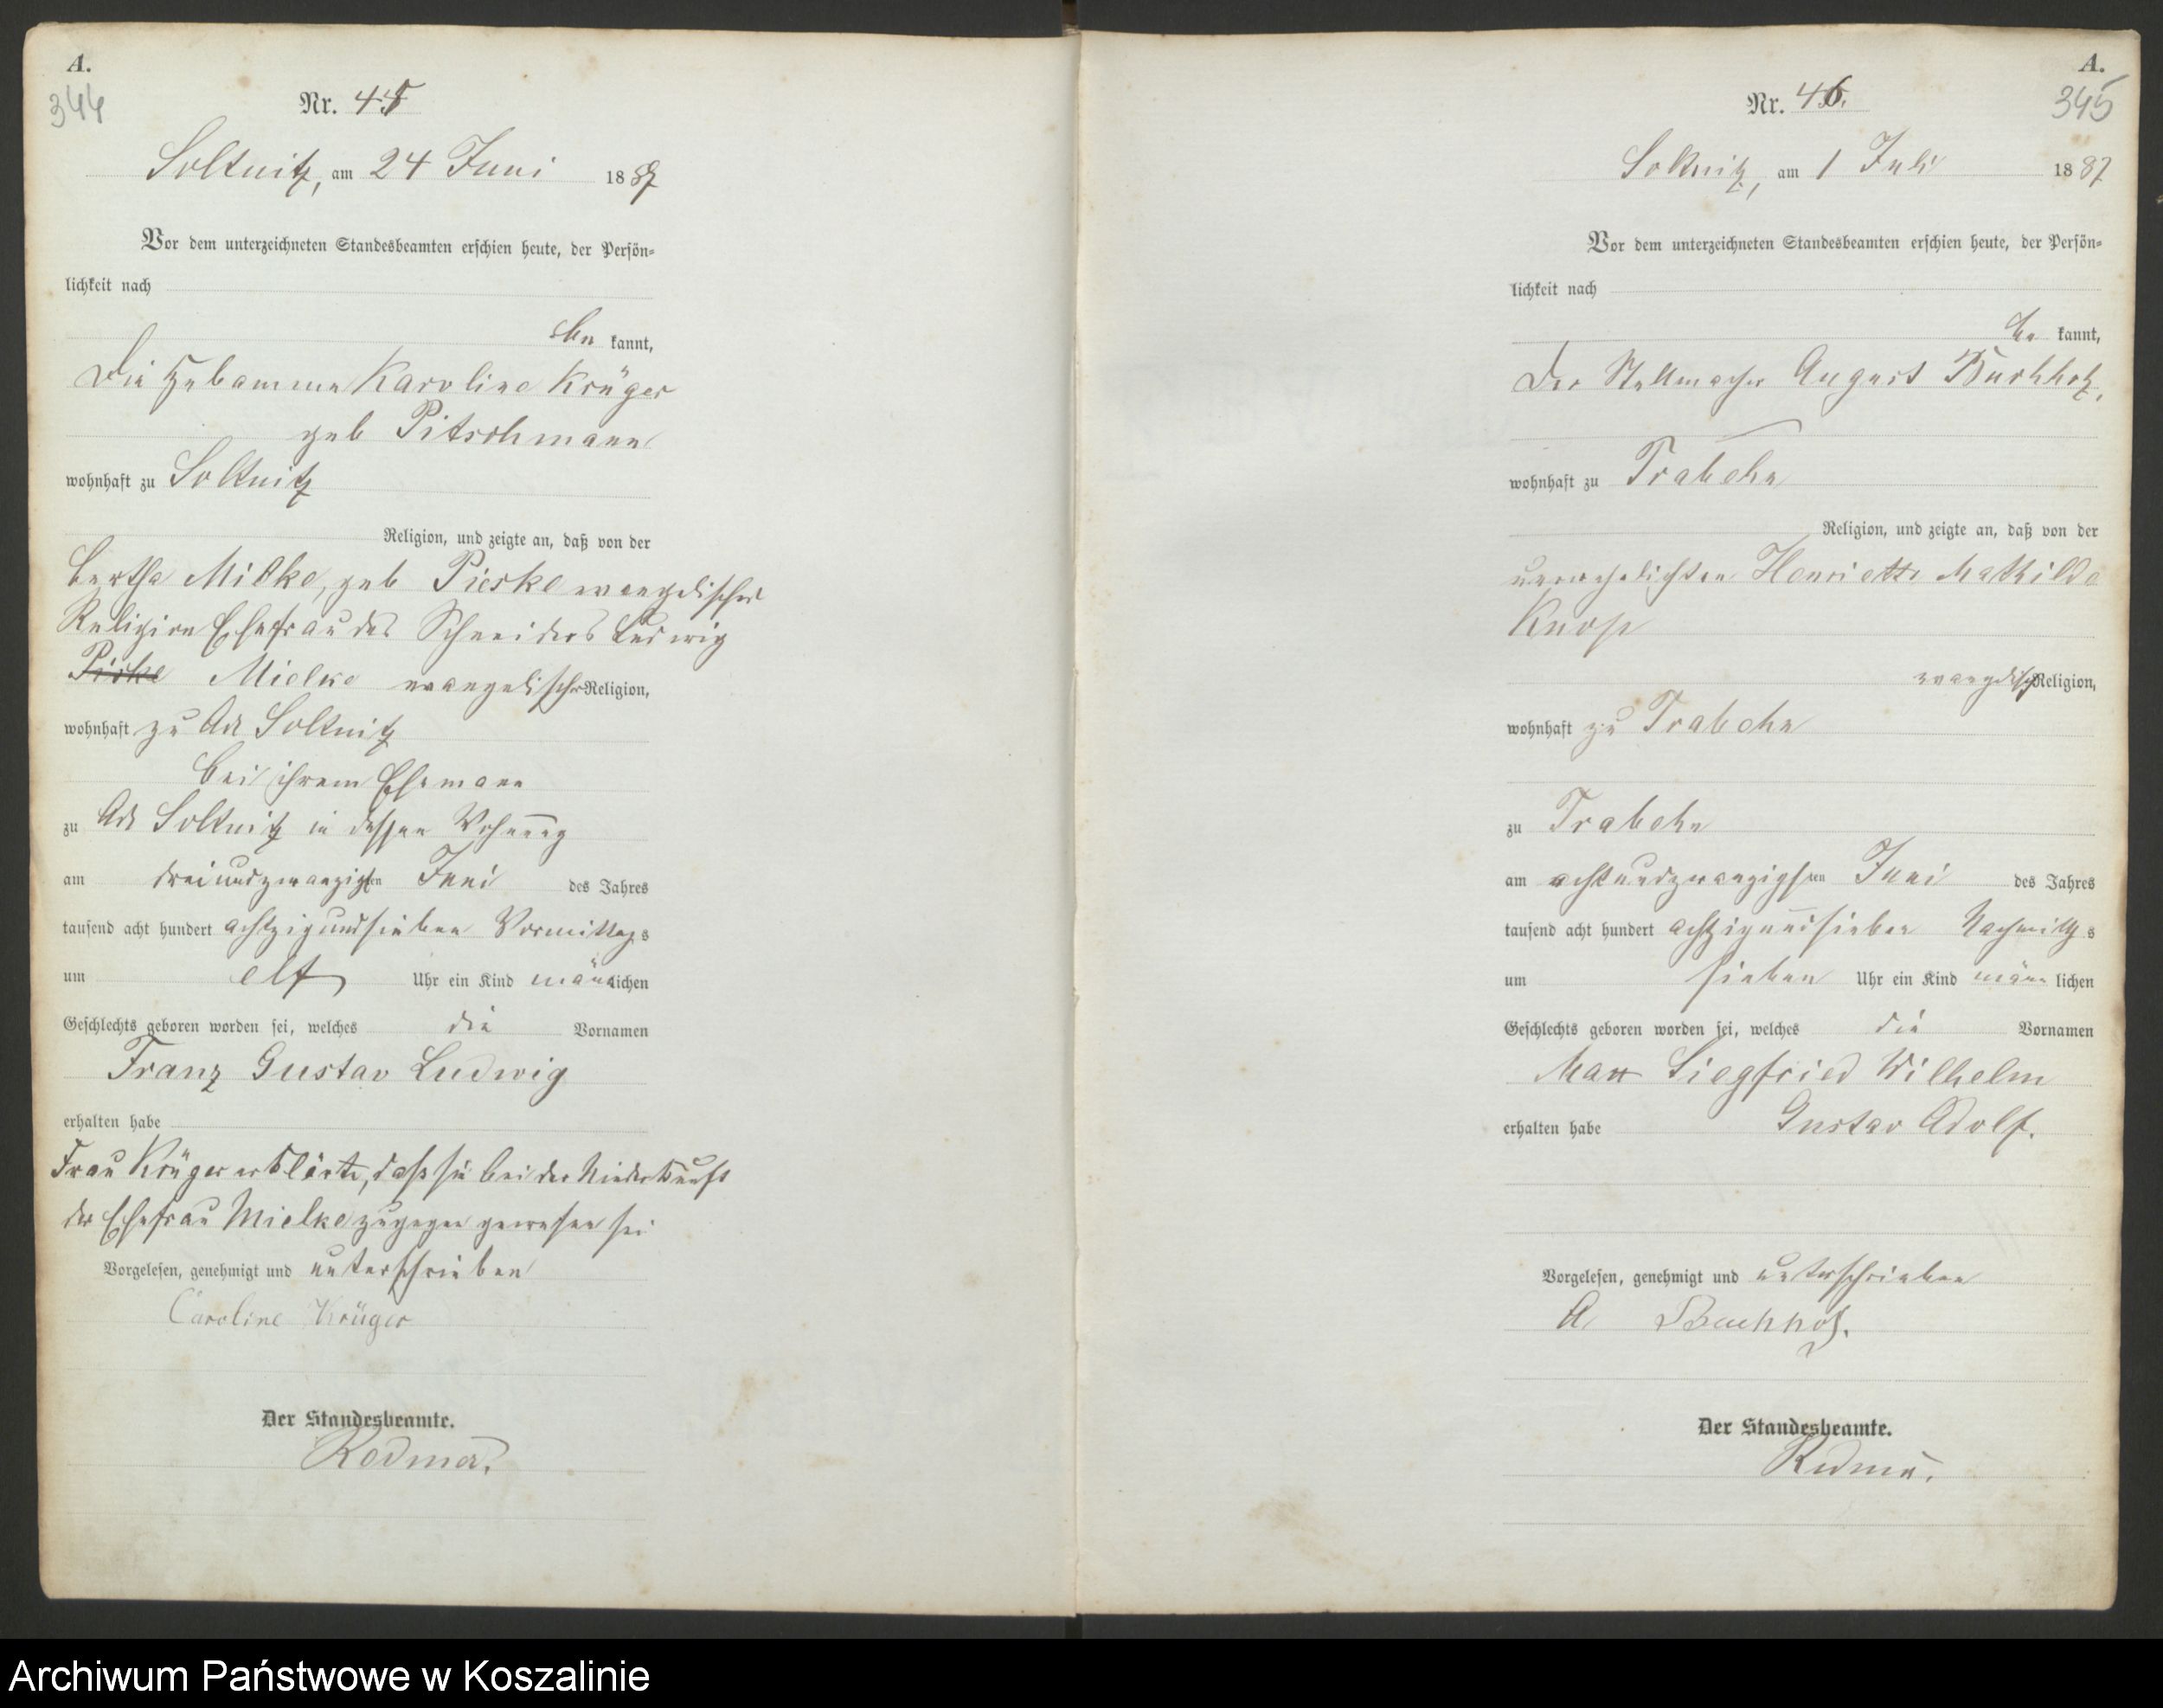 A.
344
Nr. 45
Soltnitz, am 24 Juni 1887
Vor dem unterzeichneten Standesbeamten erschien heute, der Persön-
lichkeit nach
be kannt,
Die Hebamme Karoline Krüger
geb Pitschmann
wohnhaft zu Soltnitz
Religion, und zeigte an, daß von der
Bertha Milke, geb Pieske evangelischer
Religion Ehefrau des Schneiders Ludwig
Pieske Mielke evangelischer Religion,
wohnhaft zu Adl Soltnitz
bei ihrem Ehemann
zu Adl Soltnitz in dessen Wohnung
am dreiundzwanzigsten Juni des Jahres
tausend acht hundert achtzigundsieben Vormittags
um elf Uhr ein Kind männlichen
Geschlechts geboren worden sei, welches die Vornamen
Franz Gustav Ludwig
erhalten habe
Frau Krüger erklärte, daß sie bei der Niederkunft
der Ehefrau Mielke zugegen gewesen sei
Vorgelesen, genehmigt und unterschrieben
Caroline Krüger
Der Standesbeamte.
Redmer.
A.
345
Nr. 46.
Soltnitz, am 1 Juli 1887
Vor dem unterzeichneten Standesbeamten erschien heute, der Persön-
lichkeit nach
be kannt,
Der Stellmacher August Buchholz,
wohnhaft zu Trabehn
Religion, und zeigte an, daß von der
unverehelichten Henriette Mathilde
Knop
evangelisch Religion,
wohnhaft zu Trabehn
zu Trabehn
am achtundzwanzigsten Juni des Jahres
tausend acht hundert achtzigundsieben Nachmittgs
um sieben Uhr ein Kind männlichen
Geschlechts geboren worden sei, welches die Vornamen
Max Siegfried Wilhelm
erhalten habe Gustav Adolf.
Vorgelesen, genehmigt und unterschrieben
A Buchholz.
Der Standesbeamte.
Redmer.
Archiwum Państwowe w Koszalinie